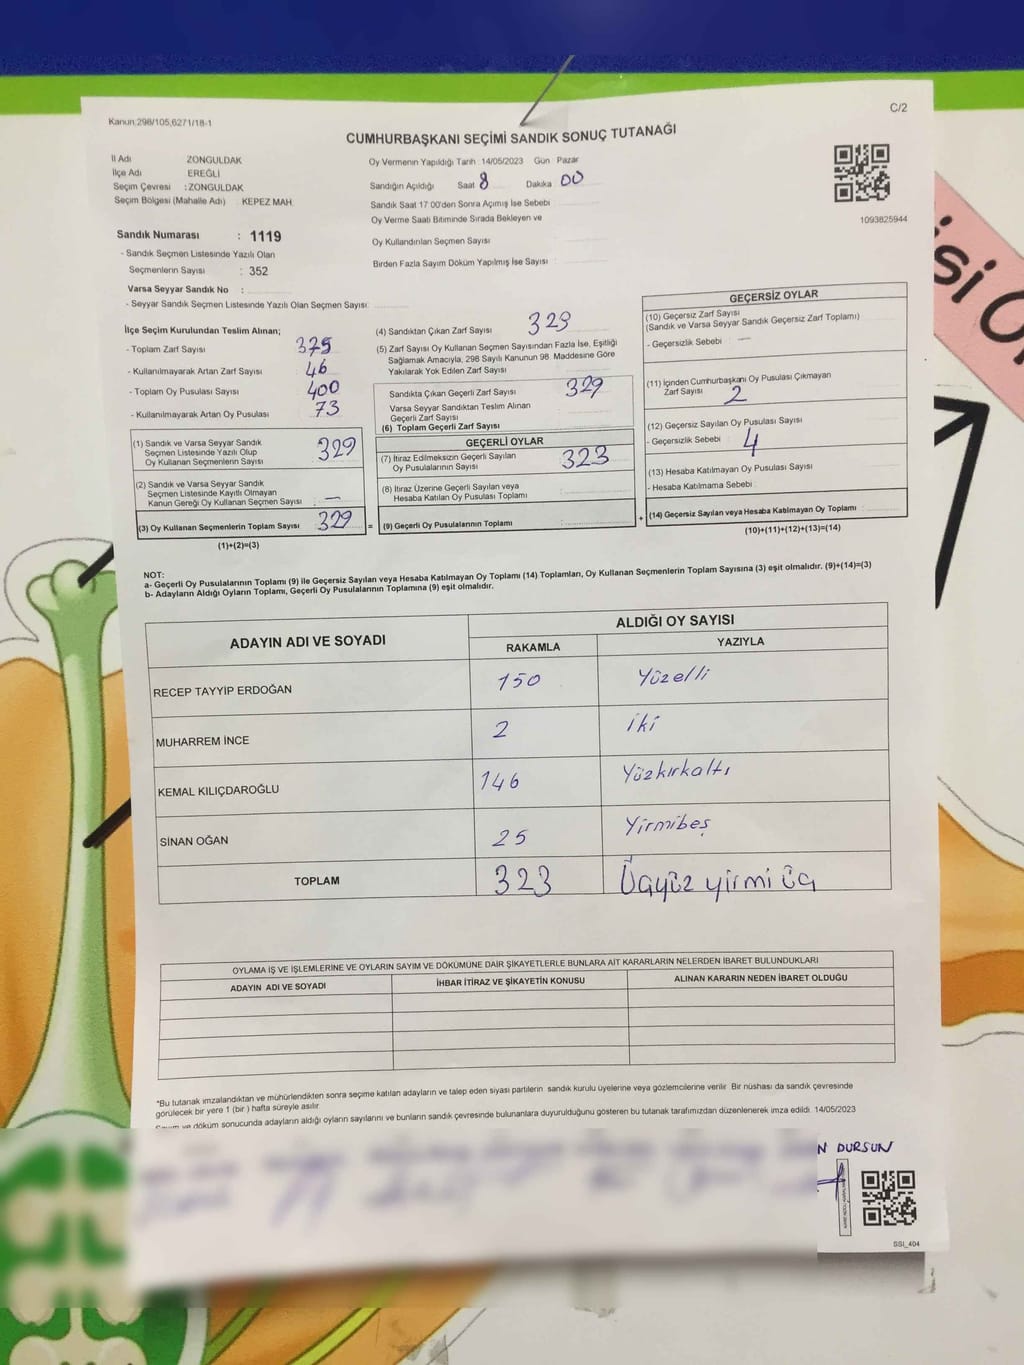 C/2
Kanun,298/105,6271/18-1
CUMHURBAŞKANI SEÇİMİ SANDIK SONUÇ TUTANAĞI
1093825944
İl Adı ZONGULDAK
İlçe Adı EREĞLİ
Seçim Çevresi : ZONGULDAK
Seçim Bölgesi (Mahalle Adı) KEPEZ MAH.
Sandık Numarası : 1119
- Sandık Seçmen Listesinde Yazılı Olan
Seçmenlerin Sayısı : 352
Varsa Seyyar Sandık No :
- Seyyar Sandık Seçmen Listesinde Yazılı Olan Seçmen Sayısı:
Oy Vermenin Yapıldığı Tarih 14/05/2023 Gün Pazar
Sandığın Açıldığı Saat 8 Dakika 00
Sandık Saat 17 00'den Sonra Açımış İse Sebebi
Oy Verme Saati Bitiminde Sırada Bekleyen ve
Oy Kullandırılan Seçmen Sayısı
Birden Fazla Sayım Döküm Yapılmış İse Sayısı
İlçe Seçim Kurulundan Teslim Alınan;
- Toplam Zarf Sayısı 375
- Kullanılmayarak Artan Zarf Sayısı 46
- Toplam Oy Pusulası Sayısı 400
- Kullanılmayarak Artan Oy Pusulası 73
(1) Sandık ve Varsa Seyyar Sandık
Seçmen Listesinde Yazılı Olup
Oy Kullanan Seçmenlerin Sayısı 329
(2) Sandık ve Varsa Seyyar Sandık
Seçmen Listesinde Kayıtlı Olmayan
Kanun Gereği Oy Kullanan Seçmen Sayısı —
(3) Oy Kullanan Seçmenlerin Toplam Sayısı 329 =
(1)+(2)=(3)
(4) Sandıktan Çıkan Zarf Sayısı 329
(5) Zarf Sayısı Oy Kullanan Seçmen Sayısından Fazla İse, Eşitliği
Sağlamak Amacıyla, 298 Sayılı Kanunun 98. Maddesine Göre
Yakılarak Yok Edilen Zarf Sayısı
Sandıkta Çıkan Geçerli Zarf Sayısı 329
Varsa Seyyar Sandıktan Teslim Alınan
Geçerli Zarf Sayısı
(6) Toplam Geçerli Zarf Sayısı
GEÇERLİ OYLAR
(7) İtiraz Edilmeksizin Geçerli Sayılan
Oy Pusulalarının Sayısı 323
(8) İtiraz Üzerine Geçerli Sayılan veya
Hesaba Katılan Oy Pusulası Toplamı
(9) Geçerli Oy Pusulalarının Toplamı +
GEÇERSİZ OYLAR
(10) Geçersiz Zarf Sayısı
(Sandık ve Varsa Seyyar Sandık Geçersiz Zarf Toplamı)
- Geçersizlik Sebebi : —
(11) İçinden Cumhurbaşkanı Oy Pusulası Çıkmayan
Zarf Sayısı 2
(12) Geçersiz Sayılan Oy Pusulası Sayısı
- Geçersizlik Sebebi 4
(13) Hesaba Katılmayan Oy Pusulası Sayısı
- Hesaba Katılmama Sebebi
(14) Geçersiz Sayılan veya Hesaba Katılmayan Oy Toplamı
(10)+(11)+(12)+(13)=(14)
NOT:
a- Geçerli Oy Pusulalarının Toplamı (9) ile Geçersiz Sayılan veya Hesaba Katılmayan Oy Toplamı (14) Toplamları, Oy Kullanan Seçmenlerin Toplam Sayısına (3) eşit olmalıdır. (9)+(14)=(3)
b- Adayların Aldığı Oyların Toplamı, Geçerli Oy Pusulalarının Toplamına (9) eşit olmalıdır.
ADAYIN ADI VE SOYADI ALDIĞI OY SAYISI
RAKAMLA YAZIYLA
RECEP TAYYİP ERDOĞAN 150 Yüzelli
MUHARREM İNCE 2 iki
KEMAL KILIÇDAROĞLU 146 Yüzkırkaltı
SİNAN OĞAN 25 Yirmibeş
TOPLAM 323 Üçyüz yirmi üç
OYLAMA İŞ VE İŞLEMLERİNE VE OYLARIN SAYIM VE DÖKÜMÜNE DAİR ŞİKAYETLERLE BUNLARA AİT KARARLARIN NELERDEN İBARET BULUNDUKLARI
ADAYIN ADI VE SOYADI İHBAR İTİRAZ VE ŞİKAYETİN KONUSU ALINAN KARARIN NEDEN İBARET OLDUĞU
*Bu tutanak imzalandıktan ve mühürlendikten sonra seçime katılan adayların ve talep eden siyasi partilerin sandık kurulu üyelerine veya gözlemcilerine verilir. Bir nüshası da sandık çevresinde
görülecek bir yere 1 (bir ) hafta süreyle asılır.
ve döküm sonucunda adayların aldığı oyların sayılarını ve bunların sandık çevresinde bulunanlara duyurulduğunu gösteren bu tutanak tarafımızdan düzenlenerek imza edildi. 14/05/2023
N DURSUN
SSI_404